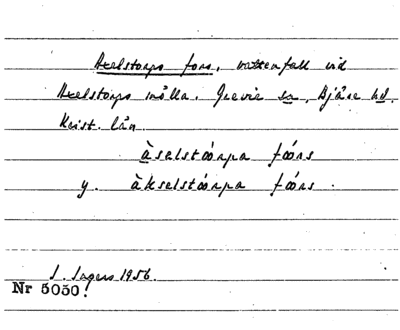 Axelstorps fors, vattenfall vid
Axelstorps mölla. Grevie sn, Bjäre hd.
Krist. län
àselstóorpa fóors
y. àkselstóorpa fóors.
S. Ingers 1956.
Nr 5050!